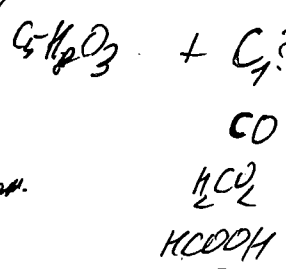 C5H8O3 + C1?
CO
H2CO2
HCOOH